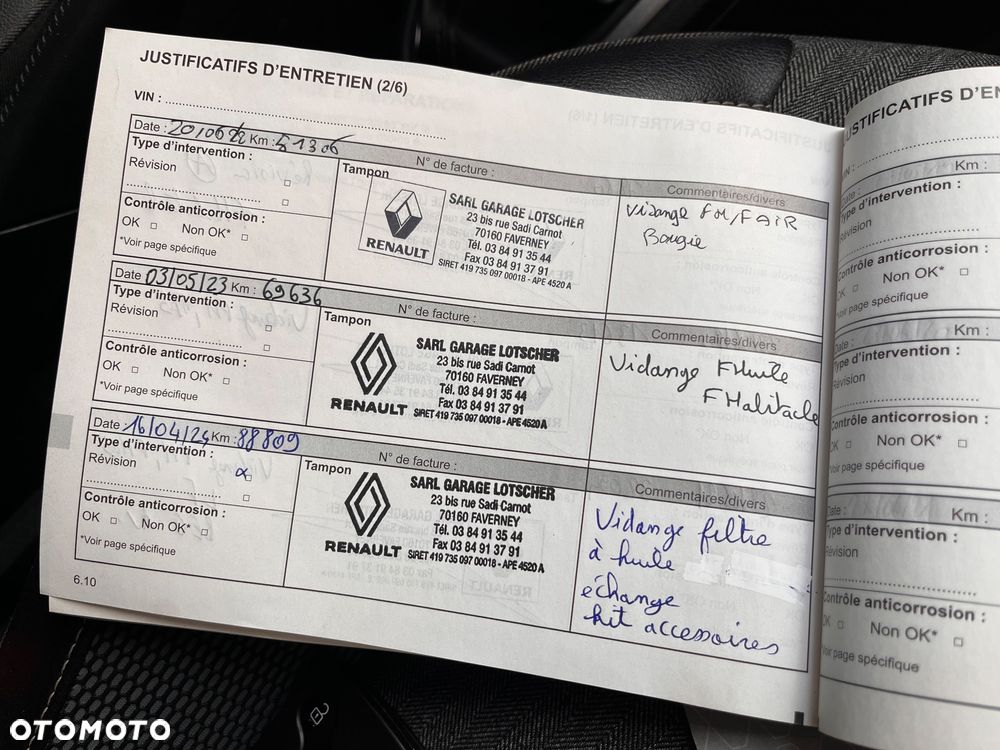 JUSTIFICATIFS D'ENTRETIEN (2/6)
VIN :
Date : 20/06/22 Km : 51306
N° de facture :
Commentaires/divers
Type d'intervention :
Révision
Contrôle anticorrosion :
OK Non OK*
*Voir page spécifique
Tampon
RENAULT
SARL GARAGE LOTSCHER
23 bis rue Sadi Carnot
70160 FAVERNEY
Tél. 03 84 91 35 44
Fax 03 84 91 37 91
SIRET 419 735 097 00018 - APE 4520 A
Vidange FM/FAIR
Bougie
Date : 03/05/23 Km : 69636
N° de facture :
Commentaires/divers
Type d'intervention :
Révision
Contrôle anticorrosion :
OK Non OK*
*Voir page spécifique
Tampon
RENAULT
SARL GARAGE LOTSCHER
23 bis rue Sadi Carnot
70160 FAVERNEY
Tél. 03 84 91 35 44
Fax 03 84 91 37 91
SIRET 419 735 097 00018 - APE 4520 A
Vidange FHuile
FHabitacle
Date : 16/04/24 Km : 88809
N° de facture :
Commentaires/divers
Type d'intervention :
Révision
Contrôle anticorrosion :
OK Non OK*
*Voir page spécifique
Tampon
RENAULT
SARL GARAGE LOTSCHER
23 bis rue Sadi Carnot
70160 FAVERNEY
Tél. 03 84 91 35 44
Fax 03 84 91 37 91
SIRET 419 735 097 00018 - APE 4520 A
Vidange filtre
à huile
échange
kit accessoires
6.10
JUSTIFICATIFS D'EN
VIN :
Date : Km :
Type d'intervention :
Révision
Contrôle anticorrosion :
OK Non OK*
*Voir page spécifique
Date : Km :
Type d'intervention :
Révision
Contrôle anticorrosion :
OK Non OK*
*Voir page spécifique
Date : Km :
Type d'intervention :
Révision
Contrôle anticorrosion :
OK Non OK*
*Voir page spécifique
OTOMOTO